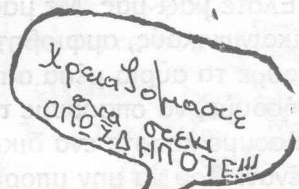 χρειαζομαστε
ενα στεκι
ΟΠΟΣΔΗΠΟΤΕ!!!